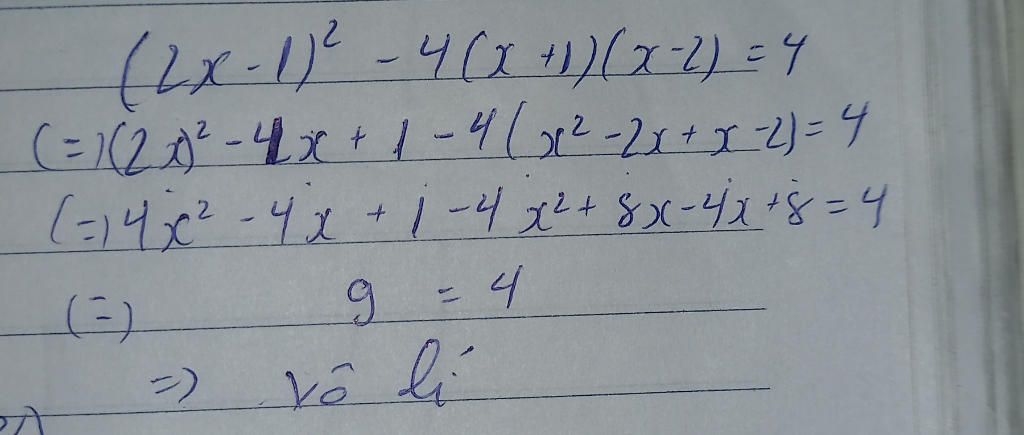 (2x-1)² - 4(x+1)(x-2) = 4
(=)(2x)² - 4x + 1 - 4(x² - 2x + x - 2) = 4
(=) 4x² - 4x + 1 - 4x² + 8x - 4x + 8 = 4
(=) 9 = 4
=) vô lí